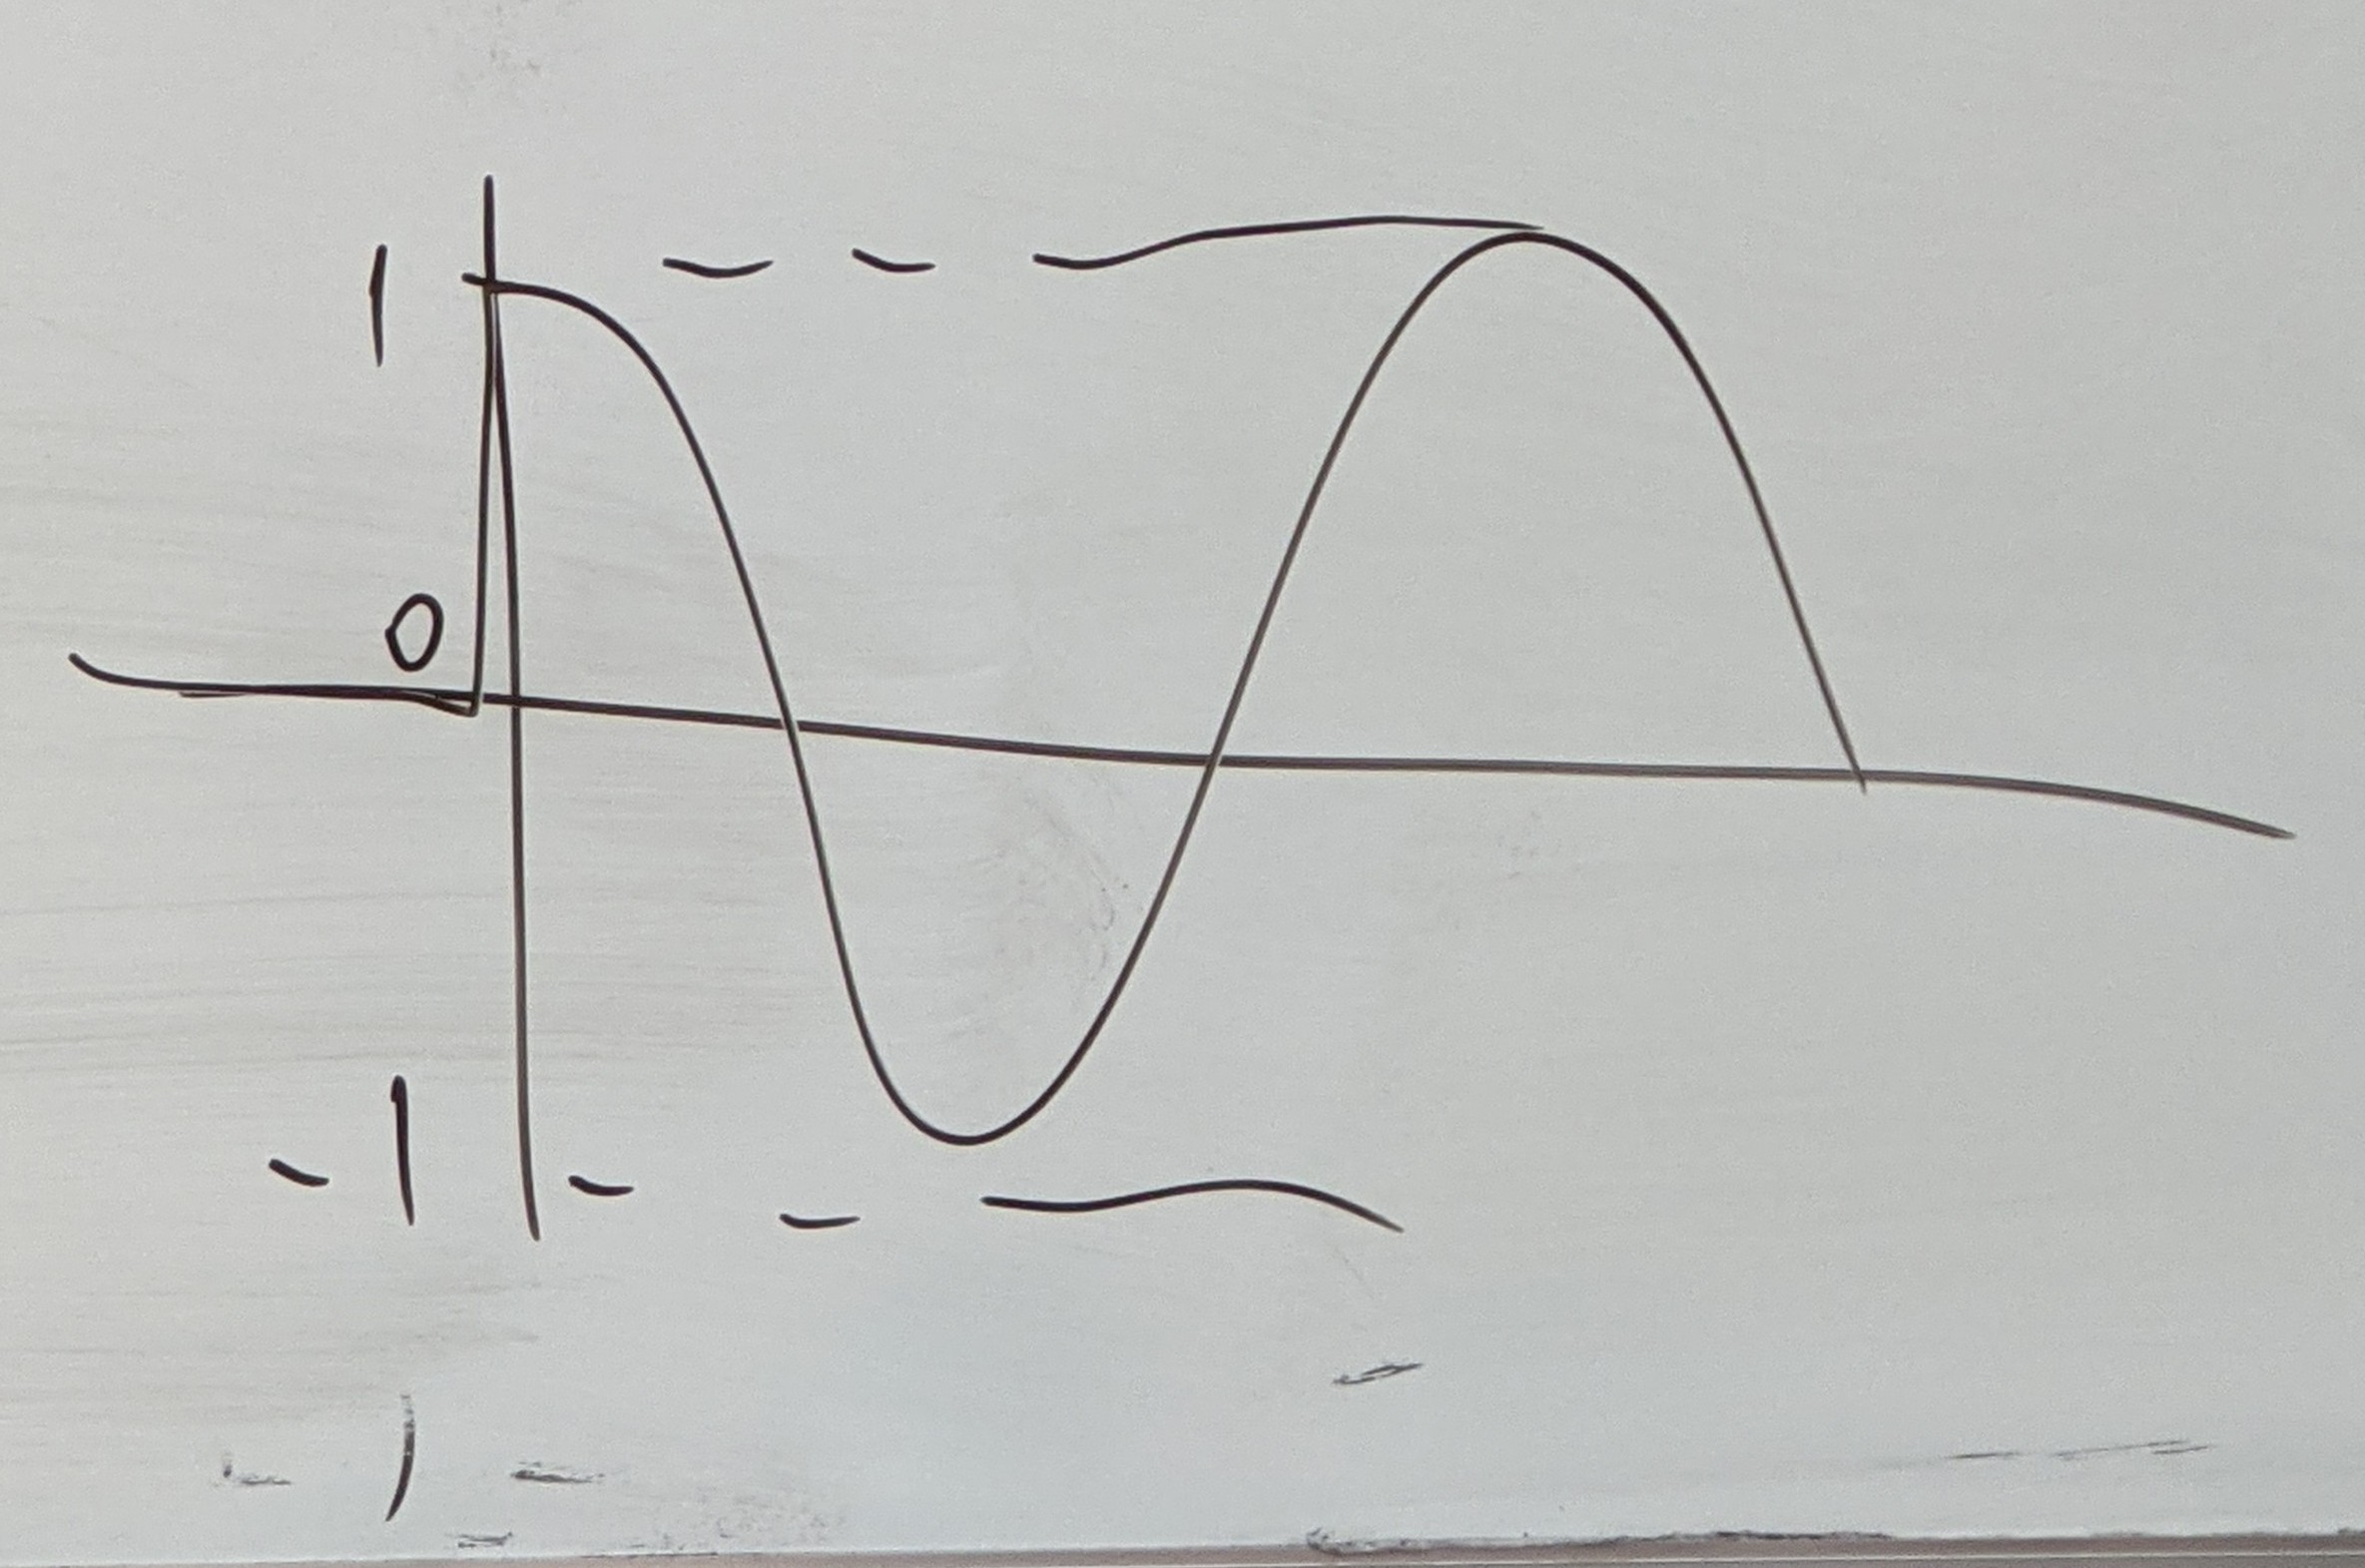 1
0
-1